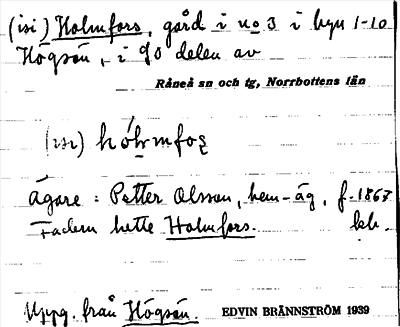 (isi) Holmfors, gård i no 3 i byn 1-10
Högsön, i 90 delen av
Råneå sn och tg, Norrbottens län
(isi)
Ägare: Petter Olsson, hem-äg, f. 1867
Fadern hette Holmfors.
Uppg. från Högsön. EDVIN BRÄNNSTRÖM 1939